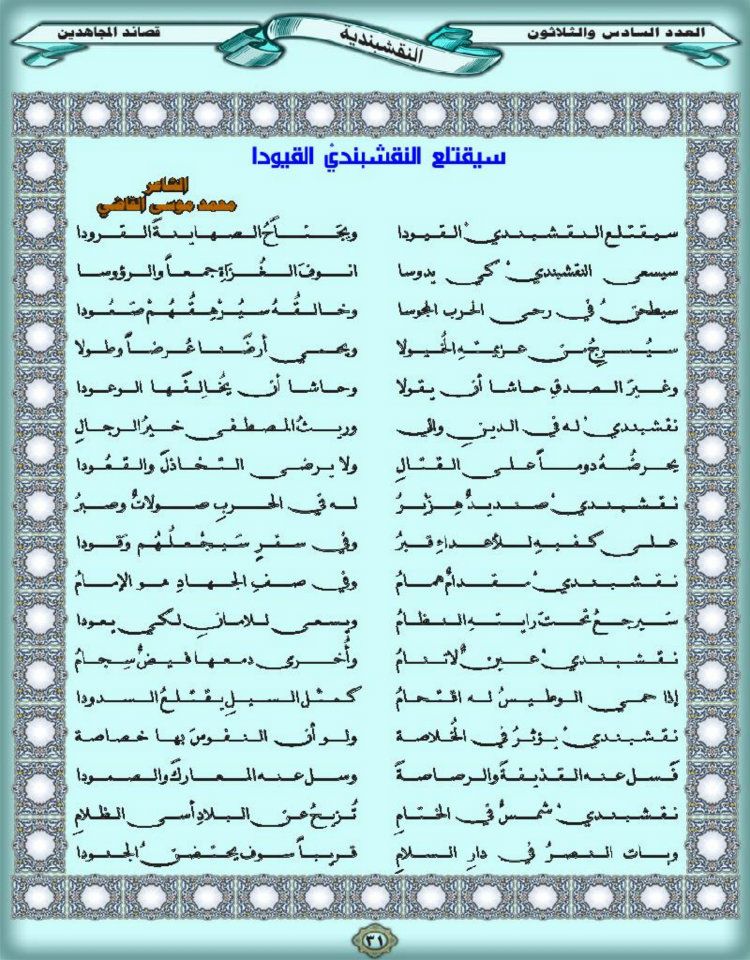 العدد السادس والثلاثون
النقشبندية
قصائد المجاهدين
سيقتلع النقشبنديُ القيودا
الشاعر
محمد موسى القاضي
سيقتلع النقشبنديُ القيودا ويجتاحُ الصهاينةَ القرودا
سيسعى النقشبنديُ كي يدوسا انوفَ الغُزاةِ جمعاً والرؤوسا
سيطحنُ في رحى الحرب المجوسا وخالقُهُ سيُرْهِقُهُمْ صَعُودا
سيُسرجُ من عزيمتهِ الخُيولا ويحمي أرضَنا عُرضاً وطولا
وغيرَ الصدقِ حاشا أن يقولا وحاشا أن يُخالِفَها الوعودا
نقشبنديُ له في الدينِ والي وريثُ المصطفى خيرُ الرجالِ
يحرضُهُ دوماً على القتالِ ولا يرضى التخاذلَ والقعُودا
نقشبنديُ صنديدٌ هِزَبْرُ له في الحربِ صولاتٌ وصبرُ
على كفيهِ للأعداءِ قبرُ وفي سقرٍ سَيَجْعلُهُم وَقودا
نقشبنديُ مقدامٌ همامُ وفي صفِ الجهادِ هو الإمامُ
سَيرجعُ تحتَ رايتهِ النظامُ ويسعى للامانِ لكي يعودا
نقشبنديُ عينٌ لاتنامُ وأُخرى دمعها فيضٌ سِجامُ
إذا حمي الوطيسُ له اقتحامُ كمثل السيلِ يقتلعُ السدودا
نقشبنديُ يؤثرُ في الخُلاصة ولو أن النفوسَ بها خصاصة
فَسل عنه القذيفةَ والرصاصةَ وسل عنه المعاركَ والصمودا
نقشبنديُ شمسٌ في الختامِ تُزيحُ عن البلادِ أسى الظلامِ
وبات النصرُ في دارِ السلامِ قريباً سوف يحتضنُ الجنودا
٣١